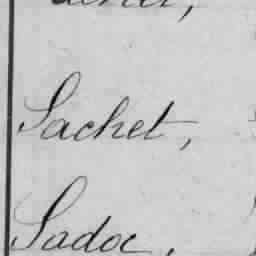 Sachet,
Sadoc,